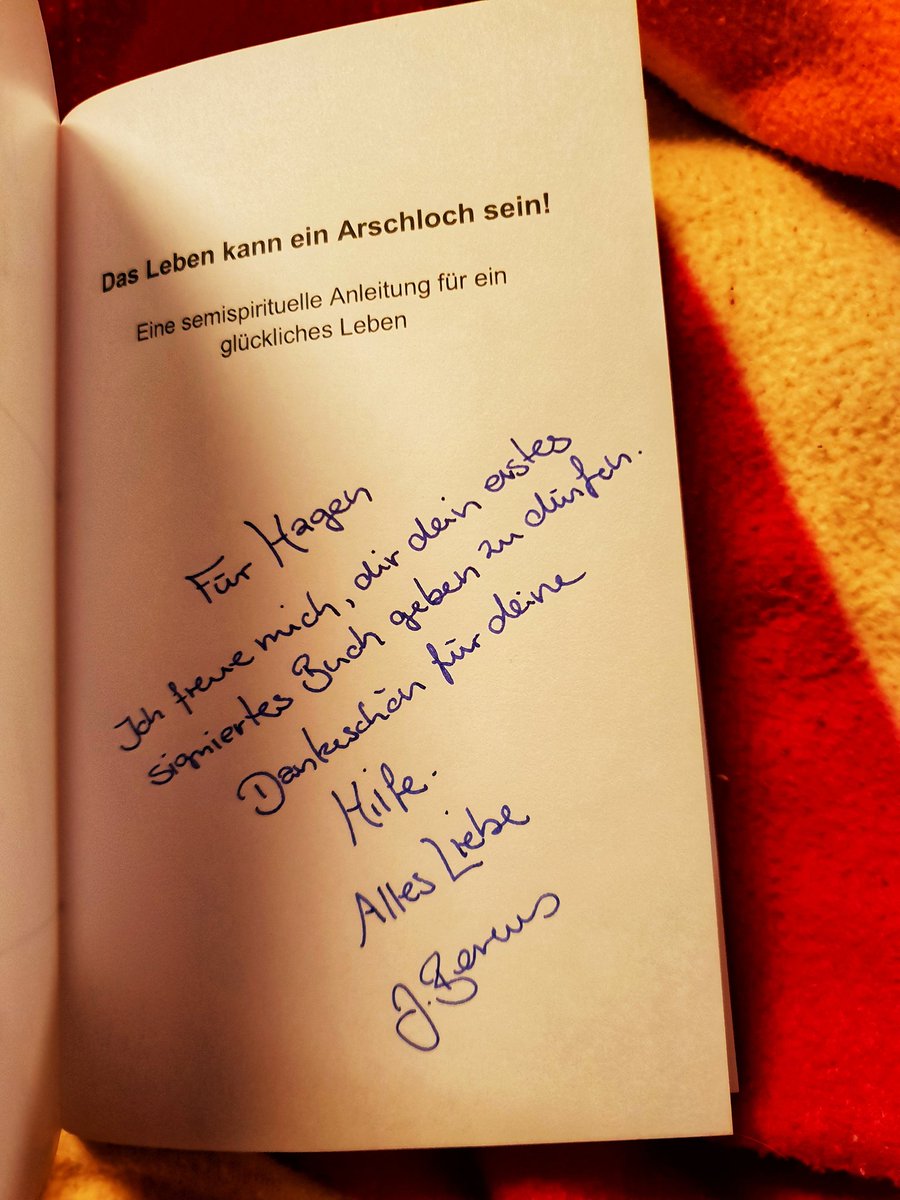 Das Leben kann ein Arschloch sein!
Eine semispirituelle Anleitung für ein
glückliches Leben
Für Hagen
Ich freue mich, dir dein erstes
signiertes Buch geben zu dürfen.
Dankeschön für deine
Hilfe.
Alles Liebe
J.